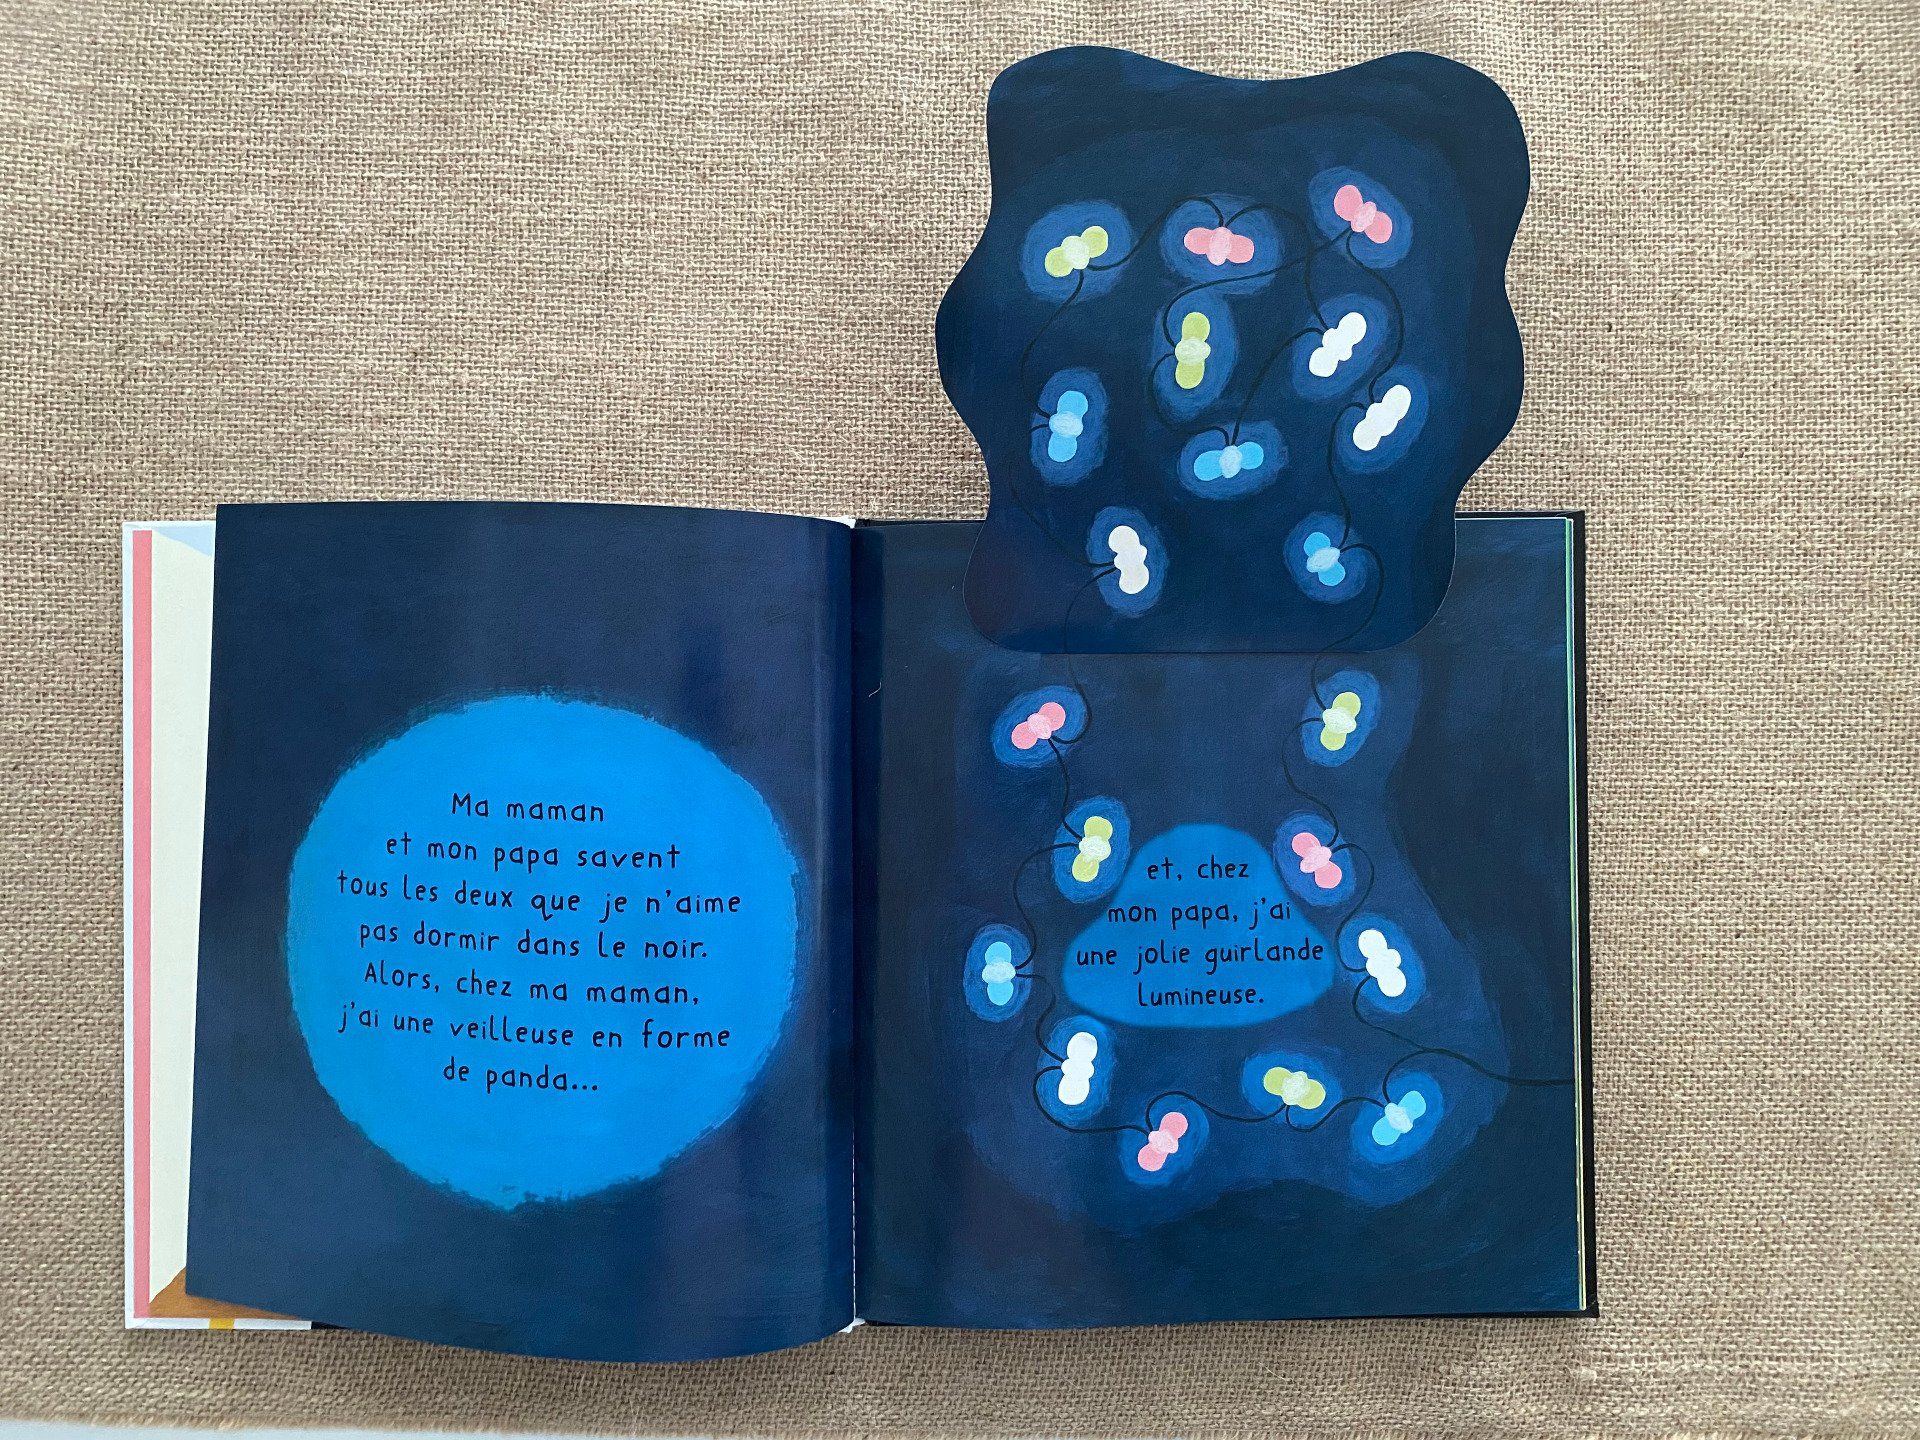 Ma maman
et mon papa savent
tous les deux que je n'aime
pas dormir dans le noir.
Alors, chez ma maman,
j'ai une veilleuse en forme
de panda...
et, chez
mon papa, j'ai
une jolie guirlande
lumineuse.